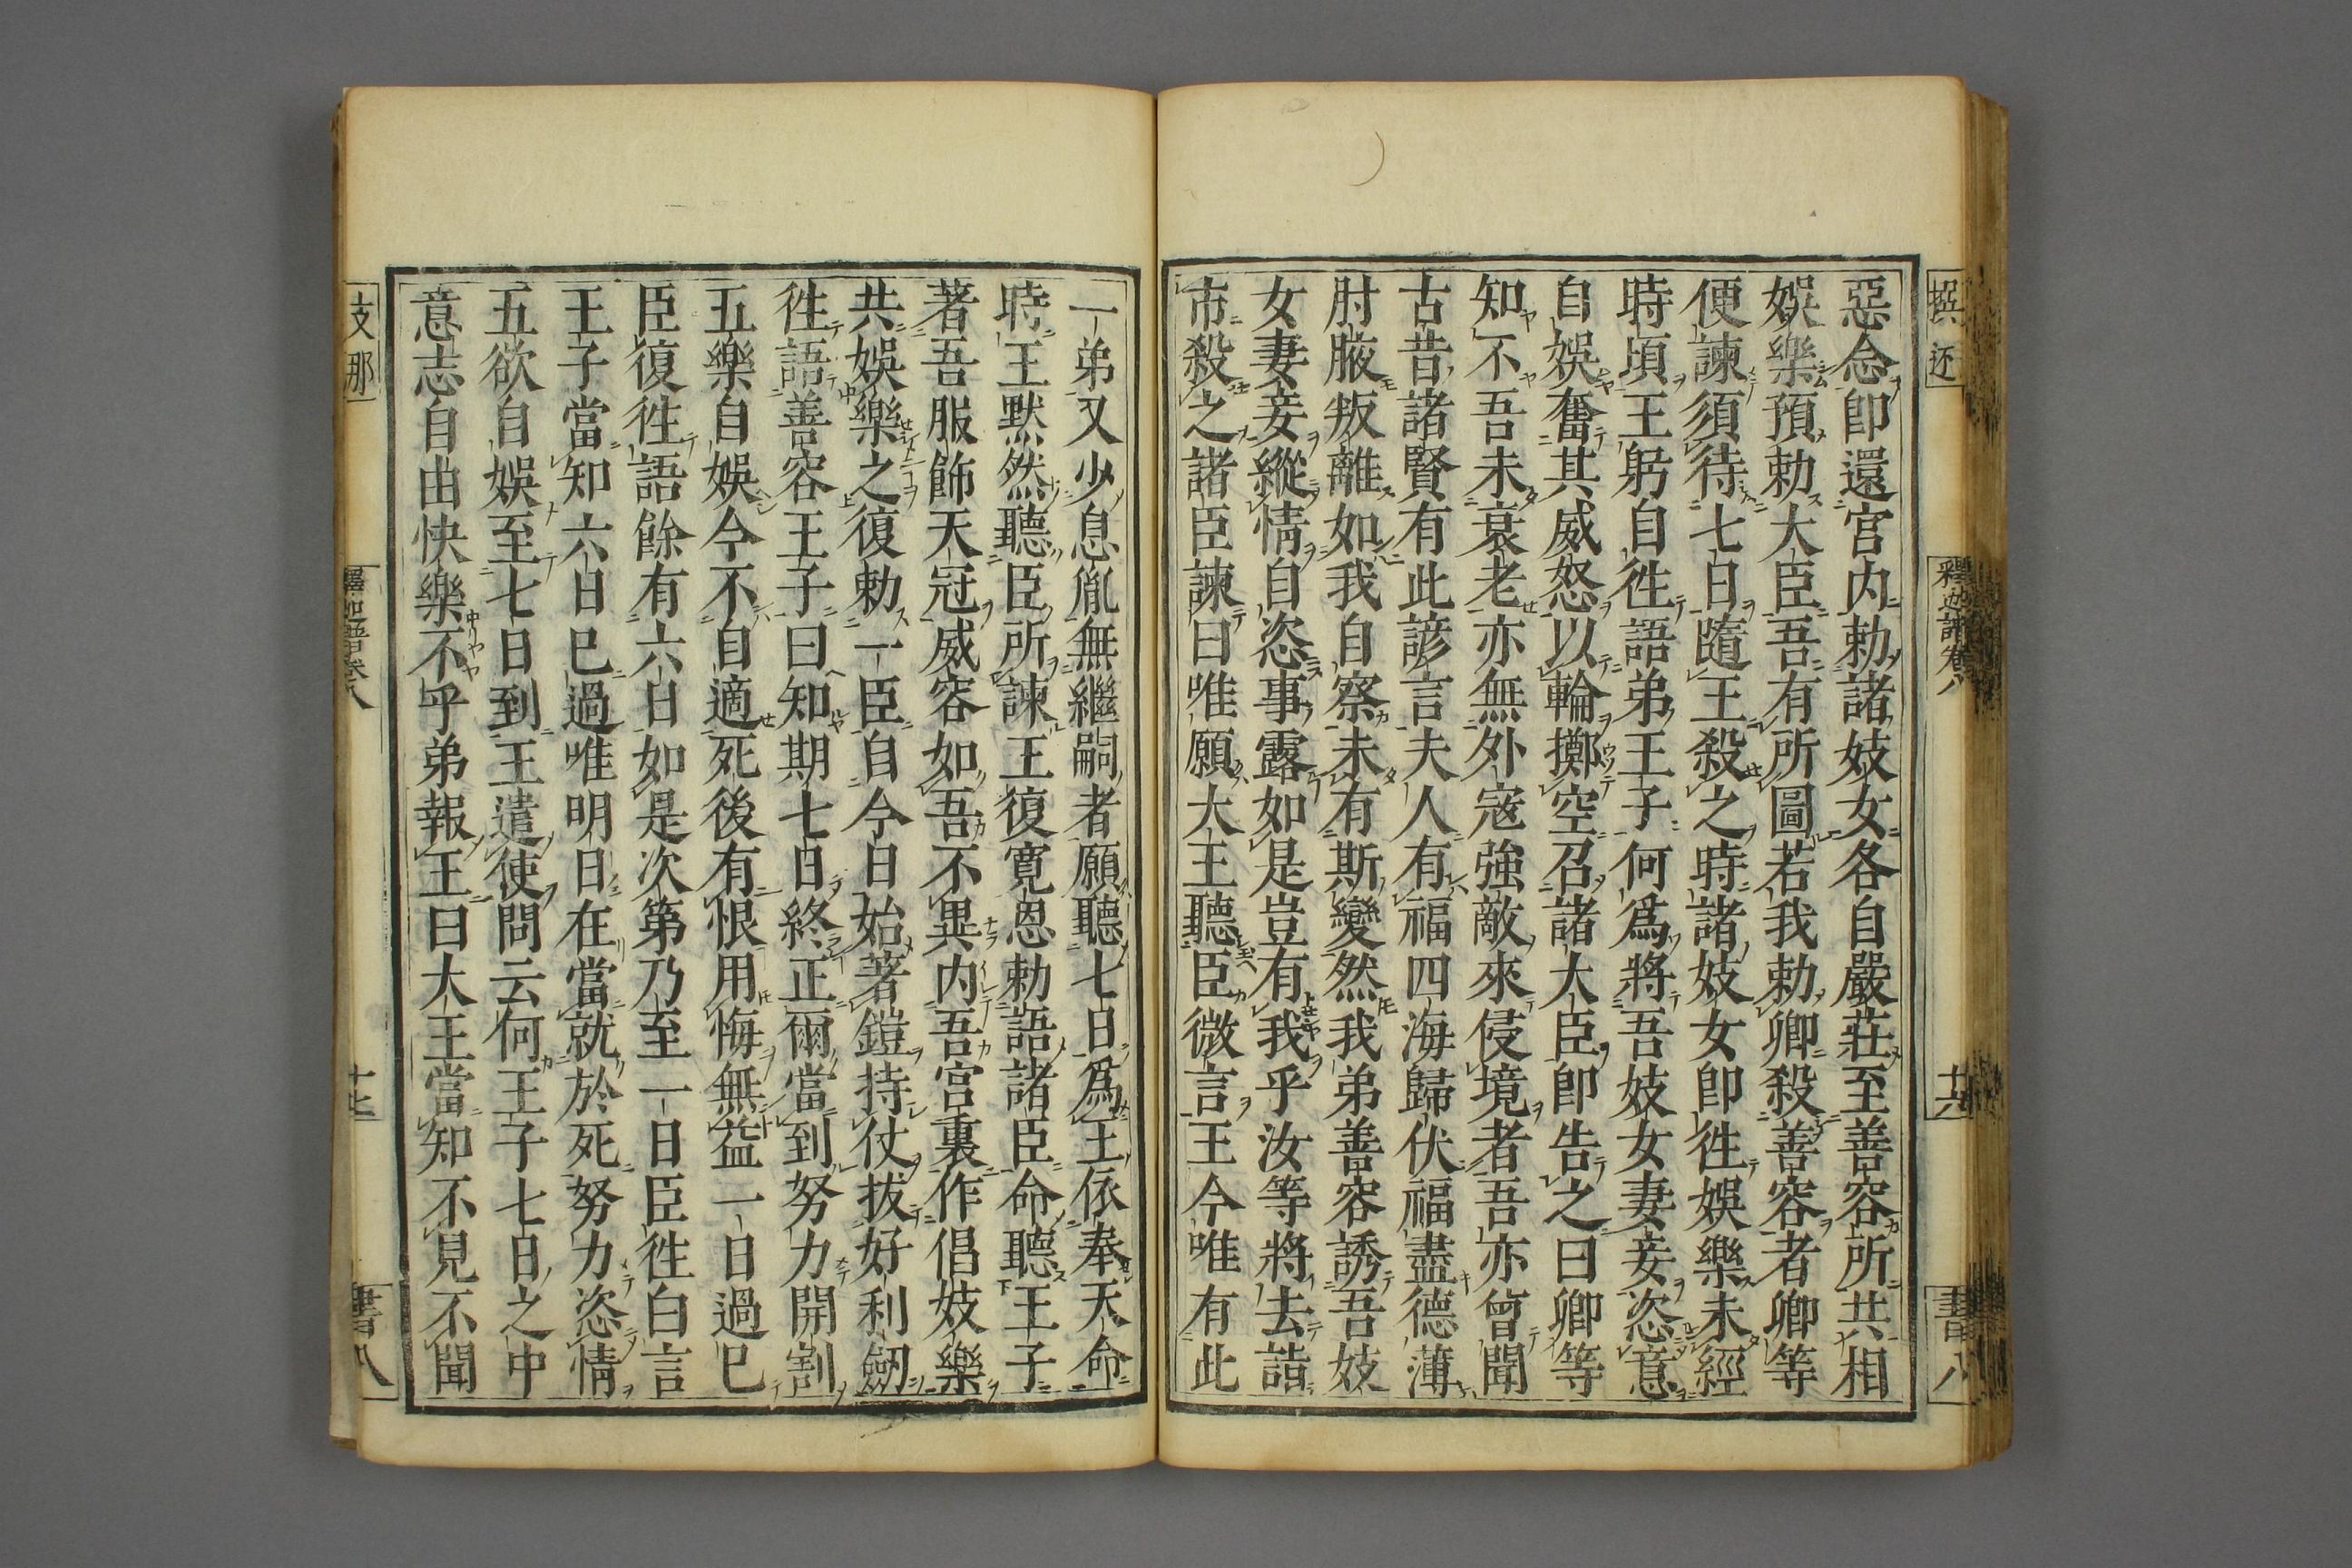 撰述
釋迦譜卷八
十六
書八
惡念卽還宮内勅諸妓女各自嚴莊至善容所共相
娛樂預勅大臣吾有所圖若我勅卿殺善容者卿等
便諫須待七日隨王殺之時諸妓女卽徃娛樂未經
時頃王躬自徃語弟王子何爲將吾妓女妻妾恣意
自娛奮其威怒以輪擲空召諸大臣卽告之曰卿等
知不吾未衰老亦無外寇強敵來侵境者吾亦曾聞
古昔諸賢有此諺言夫人有福四海歸伏福盡德薄
肘腋叛離如我自察未有斯變然我弟善容誘吾妓
女妻妾縱情自恣事露如是豈有我乎汝等將去詣
市殺之諸臣諫曰唯願大王聽臣微言王今唯有此
一弟又少息胤無繼嗣者願聽七日爲王依奉天命
時王默然聽臣所諫王復寛恩勅語諸臣命聽王子
著吾服飾天冠威容如吾不異内吾宮裏作倡妓樂
共娛樂之復勅一臣自今日始著鎧持仗拔好利劒
徃語善容王子曰知期七日終正爾當到努力開割
五樂自娛今不自適死後有恨用悔無益一日過已
臣復徃語餘有六日如是次第乃至一日臣徃白言
王子當知六日已過唯明日在當就於死努力恣情
五欲自娛至七日到王遣使問云何王子七日之中
意志自由快樂不乎弟報王曰大王當知不見不聞
支那
釋迦譜卷八
十七
書八